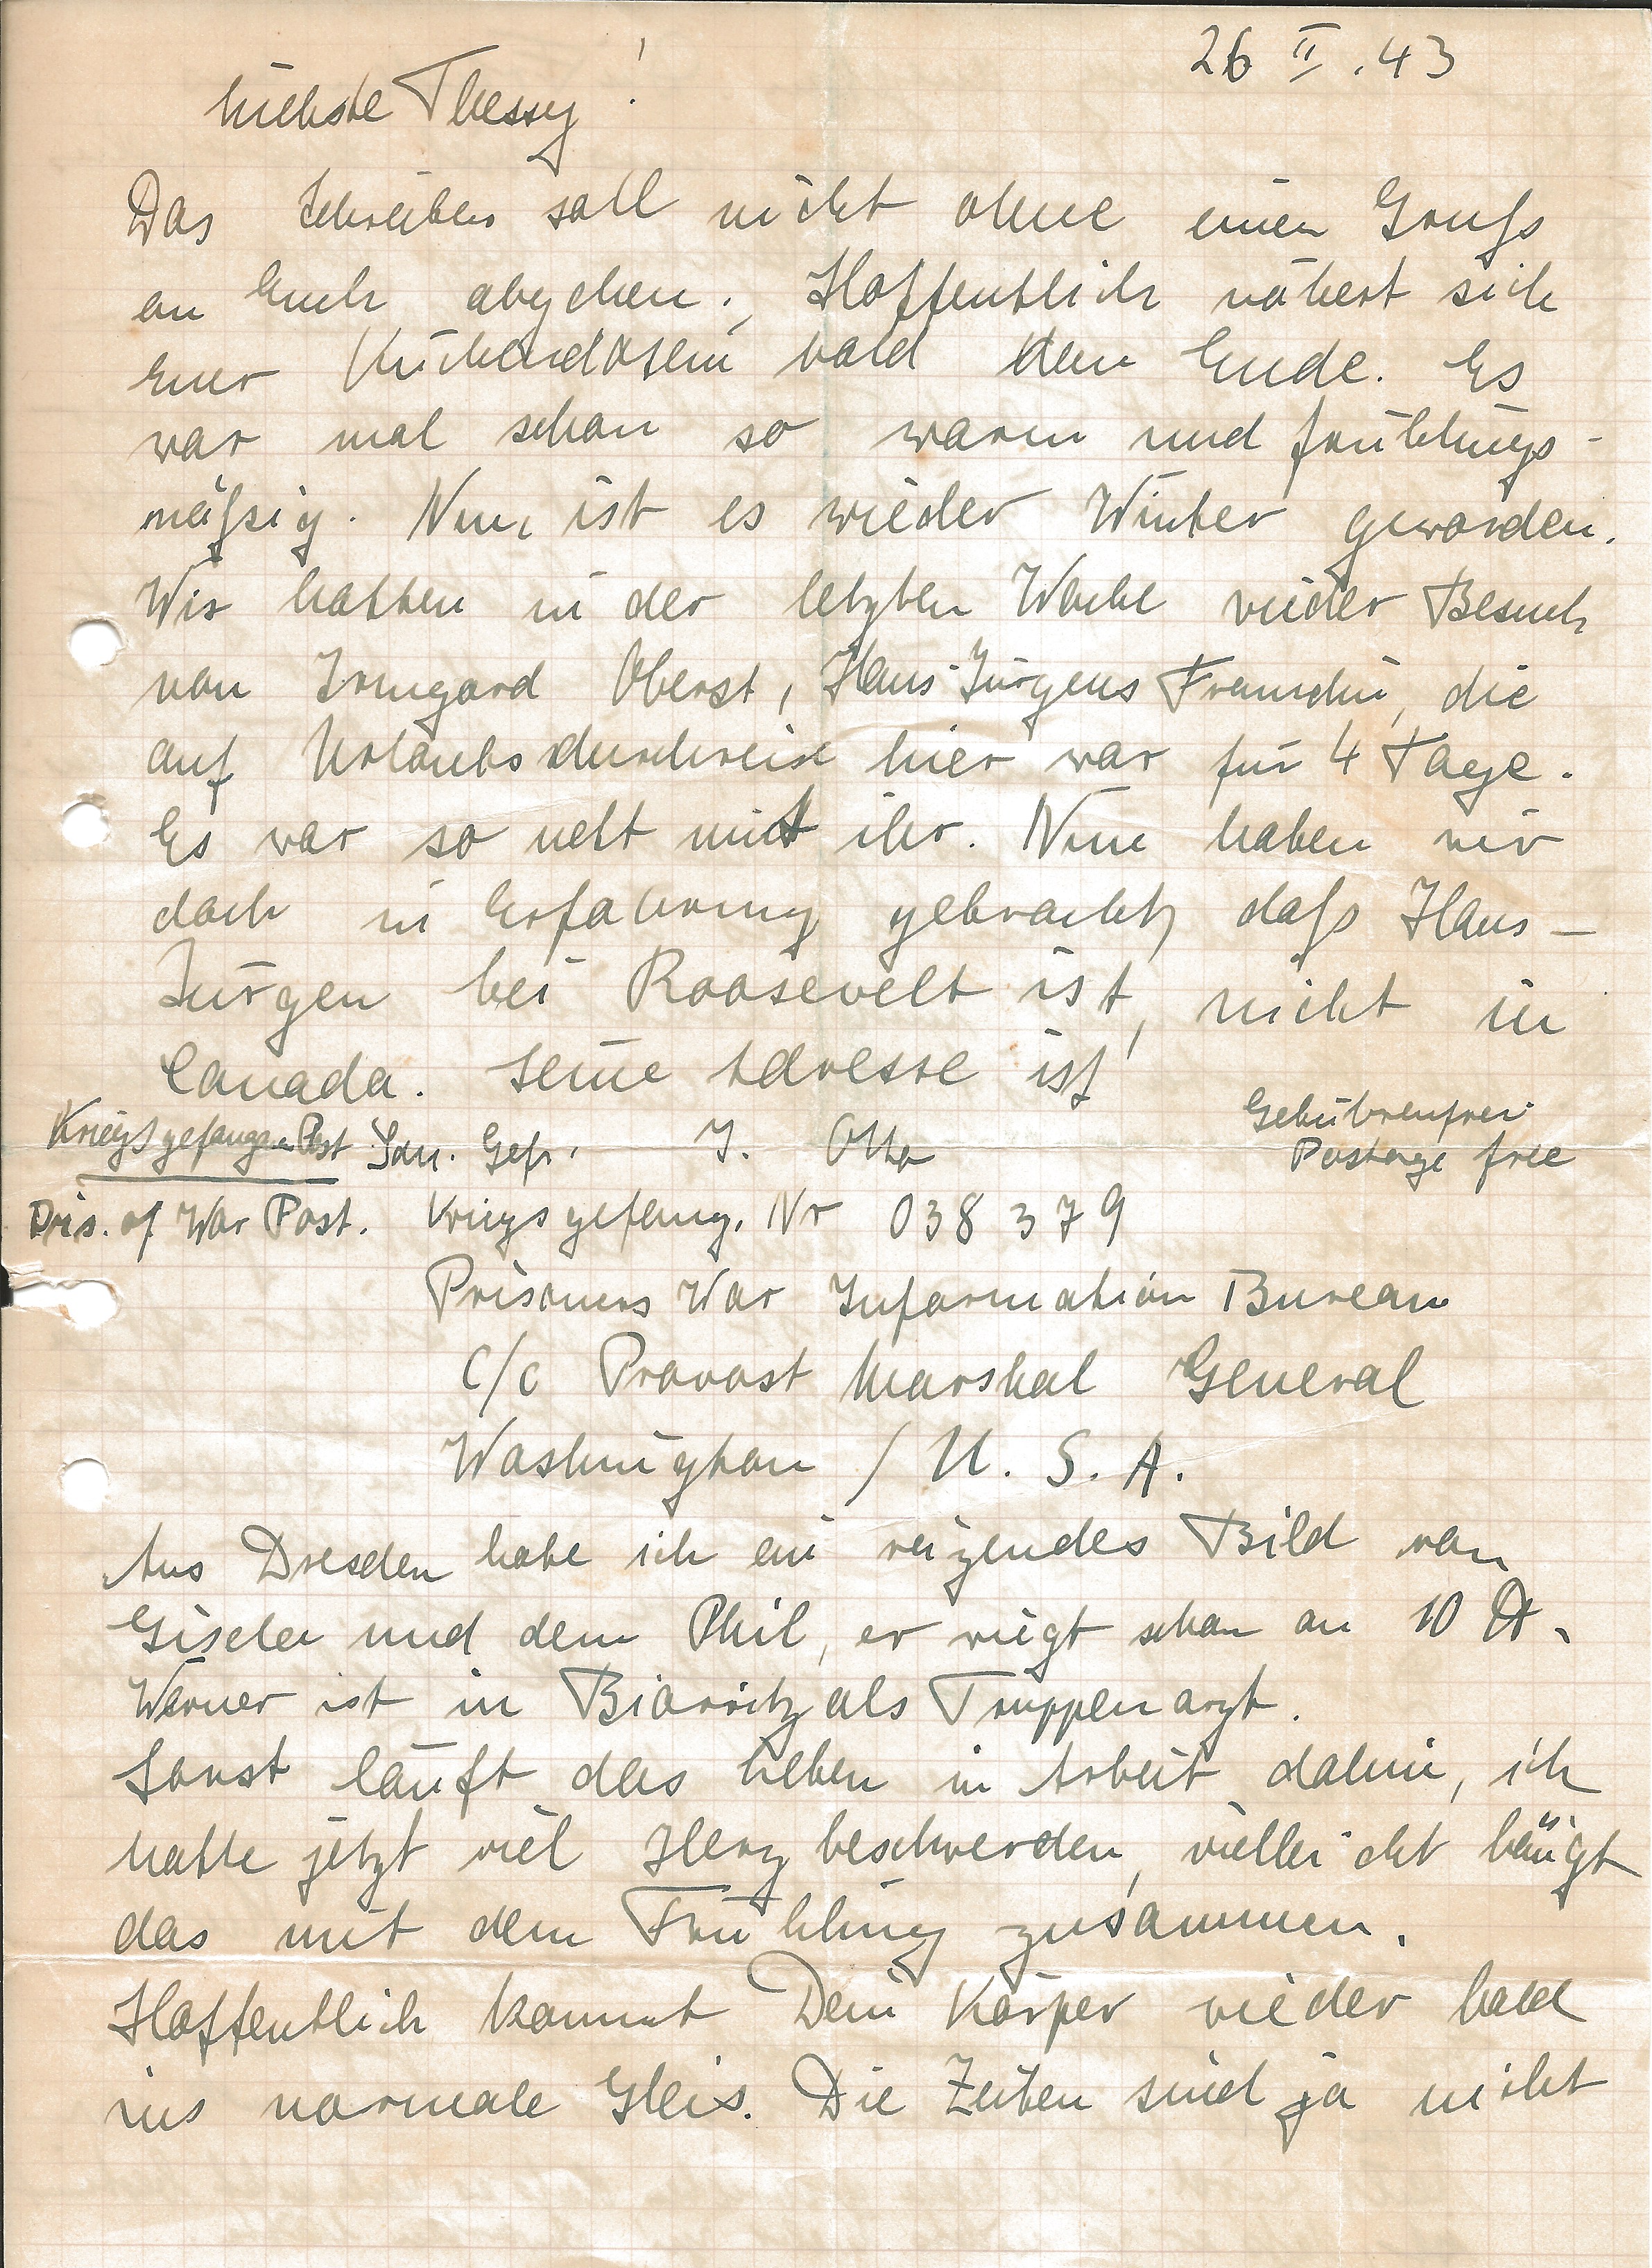 26 II. 43
Liebste Thessy!
Das Schreiben soll nicht ohne einen Gruß
an Euch abgehen. Hoffentlich nähert sich
Euer Küchendasein bald dem Ende. Es
war mal schon so warm und frühlings-
mäßig. Nun ist es wieder Winter geworden.
Wir hatten in der letzten Woche wieder Besuch
von Irmgard Oberst, Hans-Jürgens Freundin, die
auf Urlaubsdurchreise hier war für 4 Tage.
Es war so nett mit ihr. Nun haben wir
doch in Erfahrung gebracht, daß Hans-
Jürgen bei Roosevelt ist, nicht in
Canada. Seine Adresse ist
Gebührenfrei
Postage free
Kriegsgefangen Post San. Gefr. J. Otto
Pris. of War Post. Kriegsgefang. Nr 038 379
Prisoners War Information Bureau
C/c Provost Marshal General
Washington / U. S. A.
Aus Dresden habe ich ein reizendes Bild von
Gisela und dem Phil, er wiegt schon an 10 ℔.
Werner ist in Biarritz als Truppenarzt.
Sonst läuft das Leben in Arbeit dahin, ich
hatte jetzt viel Herzbeschwerden, vielleicht hängt
das mit dem Frühling zusammen.
Hoffentlich kommt Dein Körper wieder bald
ins normale Gleis. Die Zeiten sind ja nicht